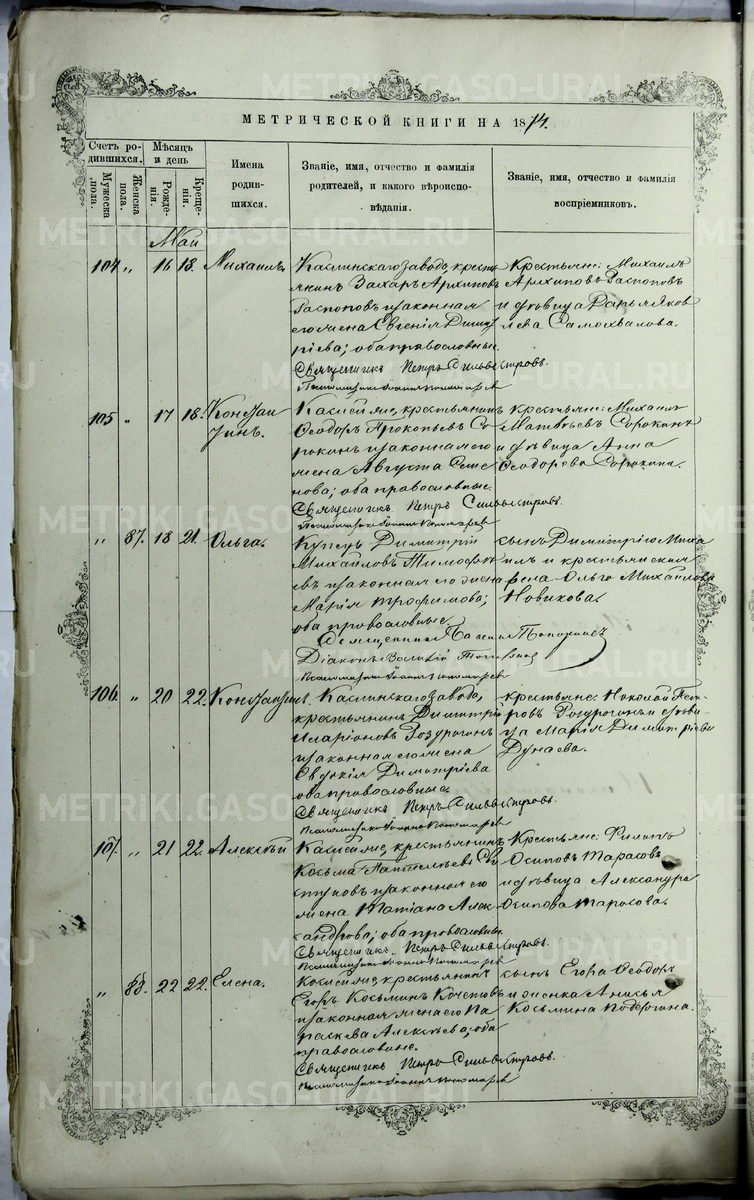 МЕТРИЧЕСКОЙ КНИГИ НА 1874.
Счетъ родившихся.
Мужеска пола.
Женска пола.
Мѣсяцъ и день
Рожденія.
Крещенія.
Имена родившихся.
Званіе, имя, отчество и фамилія родителей, и какого вѣроисповѣданія.
Званіе, имя, отчество и фамилія воспріемниковъ.
Май
104 „ 16 18. Михаилъ
Каслинскаго завода, кресть
янинъ Захаръ Архиповъ
Распоповъ и законная
его жена Евгенія Димит
ріева; оба православные.
Священникъ Петръ Сильвестровъ.
Псаломщикъ Іоаннъ Пономаревъ
Крестьяне: Михаилъ
Архиповъ Распоповъ
и дѣвица Дарья Яков
лева Самохвалова.
105 „ 17 18. Констан
тинъ.
Касліецъ, крестьянинъ
Ѳеодоръ Прокопьевъ Со
рокинъ и законная его
жена Августа Семе
нова; оба православные.
Священникъ Петръ Сильвестровъ.
Псаломщикъ Іоаннъ Пономаревъ
крестьяне: Михаилъ
Матвѣевъ Сорокинъ
и дѣвица Анна
Ѳеодорова Сорокина.
„ 87. 18 21 Ольга.
Купецъ Димитрій
Михайловъ Тимофе
евъ и законная его жена
Марія Трофимова;
оба православные.
Священникъ
Діаконъ
Псаломщикъ Іоаннъ Пономаревъ
сынъ Димитрію Миха
илъ и крестьянская
Ольга Михайлова
Новикова.
106 „ 20 22. Константинъ.
Каслинскаго завода,
крестьянинъ Димитрій
Иларіоновъ
и законная его жена
Евдокія Димитріева
оба православные.
Священникъ Петръ Сильвестровъ.
Псаломщикъ Іоаннъ Пономаревъ
крестьяне: Николай Пет
ровъ и дѣви
ца Марія Димитріева
Дунаева.
107. „ 21 22. Алексѣй
Касліецъ, крестьянинъ
Козьма
и законная его
жена Татіана Алек
сандрова; оба православные
Священникъ Петръ Сильвестровъ.
Псаломщикъ Іоаннъ Пономаревъ
Крестьяне: Филипъ
Осиповъ Тарасовъ
и дѣвица Александра
Осипова Тарасова.
„ 88. 22 22. Елена.
Касліецъ, крестьянинъ
Егоръ Козьминъ
и законная жена его Па
раскева Алексѣева; оба
православные.
Священникъ Петръ Сильвестровъ.
Псаломщикъ Іоаннъ Пономаревъ
сынъ Егора Ѳеодоръ
и женка Анисья
Козьмина
METRIKI.GASO-URAL.RU